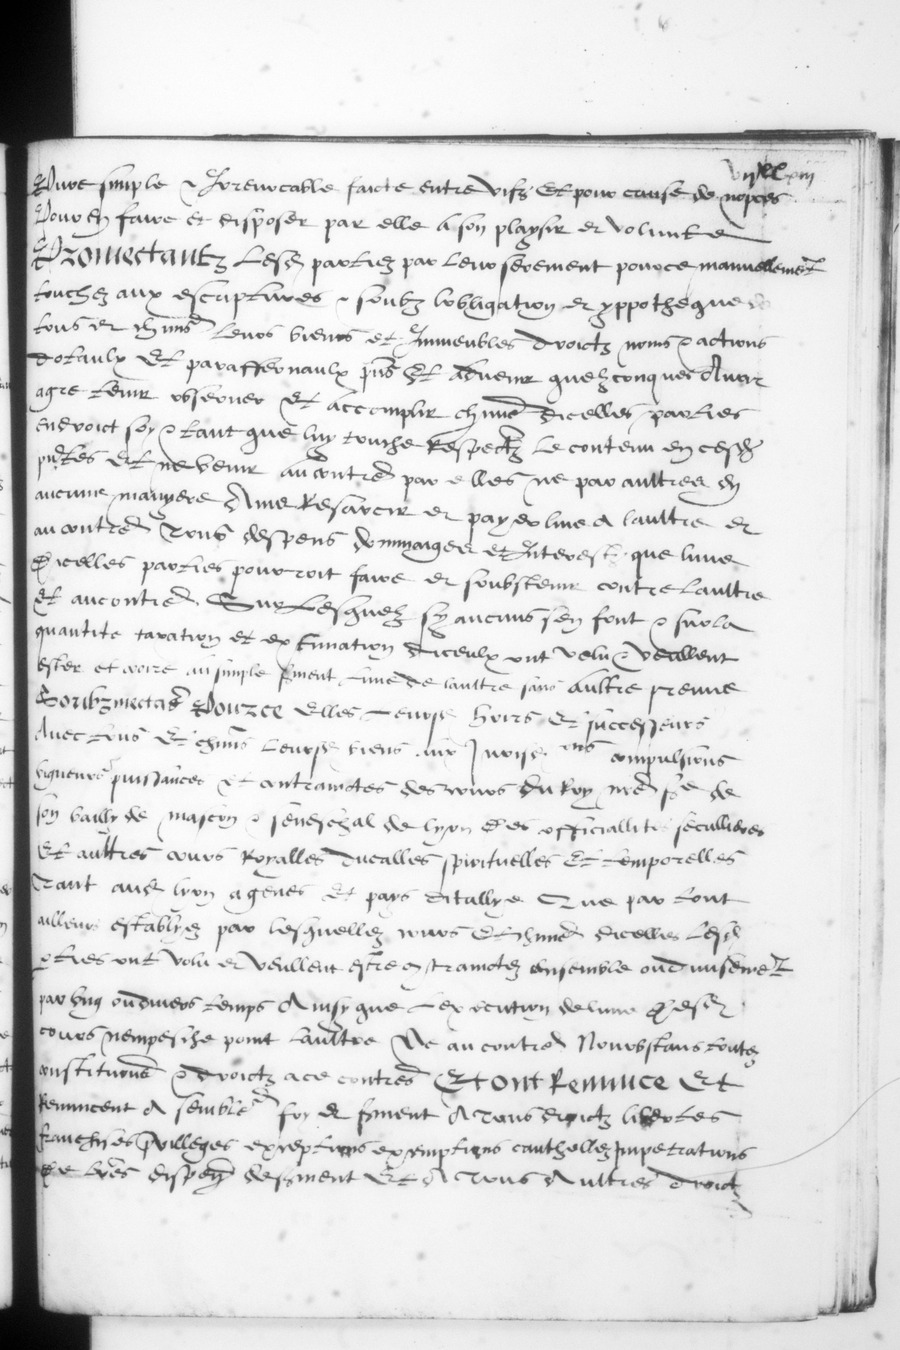 Pure simple & Irrevocable faicte entre vifz Et pour cause de nopces
Pour en faire et disposer par elle a son playsir et volunte
Promectantz lesd parties par leur serement pource manuellement
touchez aux escriptures & soubz lobligation et yppotheque de
tous et chuns leurs biens et Immeubles droictz noms & actions
dotaulx Et paraffernaulx pns Et advenir quelzconques Avoir
agre tenir observer Et accomplir chune dicelles parties
endroict soy & tant que luy touche respectz le contenu en cesd
pntes Et ne venir au contre par elles ne par aultre en
aucune manyere Ains Resarcir et payer lune a laultre et
au contre Tous despens dommaiges et Interestz que lune
dicelles parties pourroit faire et soubstenir contre laultre
Et au contre Sur lesquelz sy aucuns sen font & sur la
quantite taxation et extimation diceulx ont volu & veullent
ester et croire au simple sment lune de laultre sans aultre preuve
pource elles leursd hoirs Et successeurs
Avec tous Et chuns leursd biens aux compulsions
vigueurs puissances et contrainctes des cours du Roy nre sre de
son bailly de mascon & seneschal de lyon des officiallites seculieres
Et aultres cours Royalles ducalles spirituelles Et temporelles
Tant aud lyon a genes Et pays ditallye Que par tout
ailleurs establyes par lesquelles cours Et chune dicelles lesd
pties ont volu et veullent estre contrainctz ensemble ou divisemet
par ung ou divers temps Ainsy que lexecution de lune desd
cours nempesche point laultre Ne au contre Nonobstans toutes
constitutions & droictz a ce contres Et ont Renunce Et
Renuncent A semble foy et sment A Tous droictz libertes
franchises privilleges exceptions exemptions cauthelles Impetrations
de lres dispen de sment Et A Tous Aultres droictz